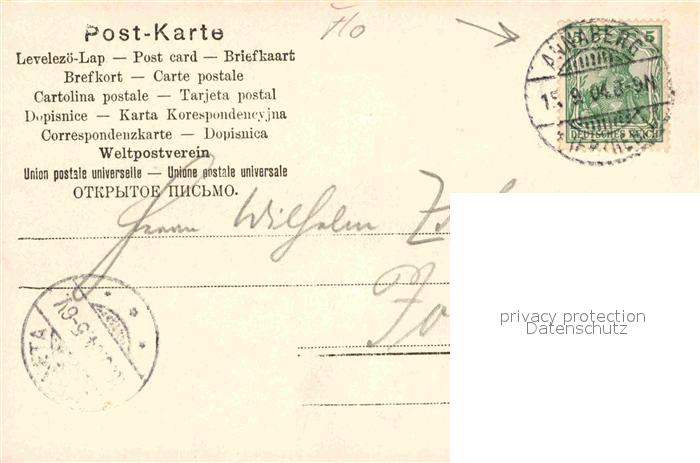 Post-Karte
Levelező-Lap — Post card — Briefkaart
Brefkort — Carte postale
Cartolina postale — Tarjeta postal
Dopisnice — Karta Korespondencyjna
Correspondenzkarte — Dopisnica
Weltpostverein
Union postale universelle — Unione postale universale
ОТКРЫТОЕ ПИСЬМО.
ANNABERG
5
DEUTSCHES REICH
Herrn Wilhelm
privacy protection
Datenschutz